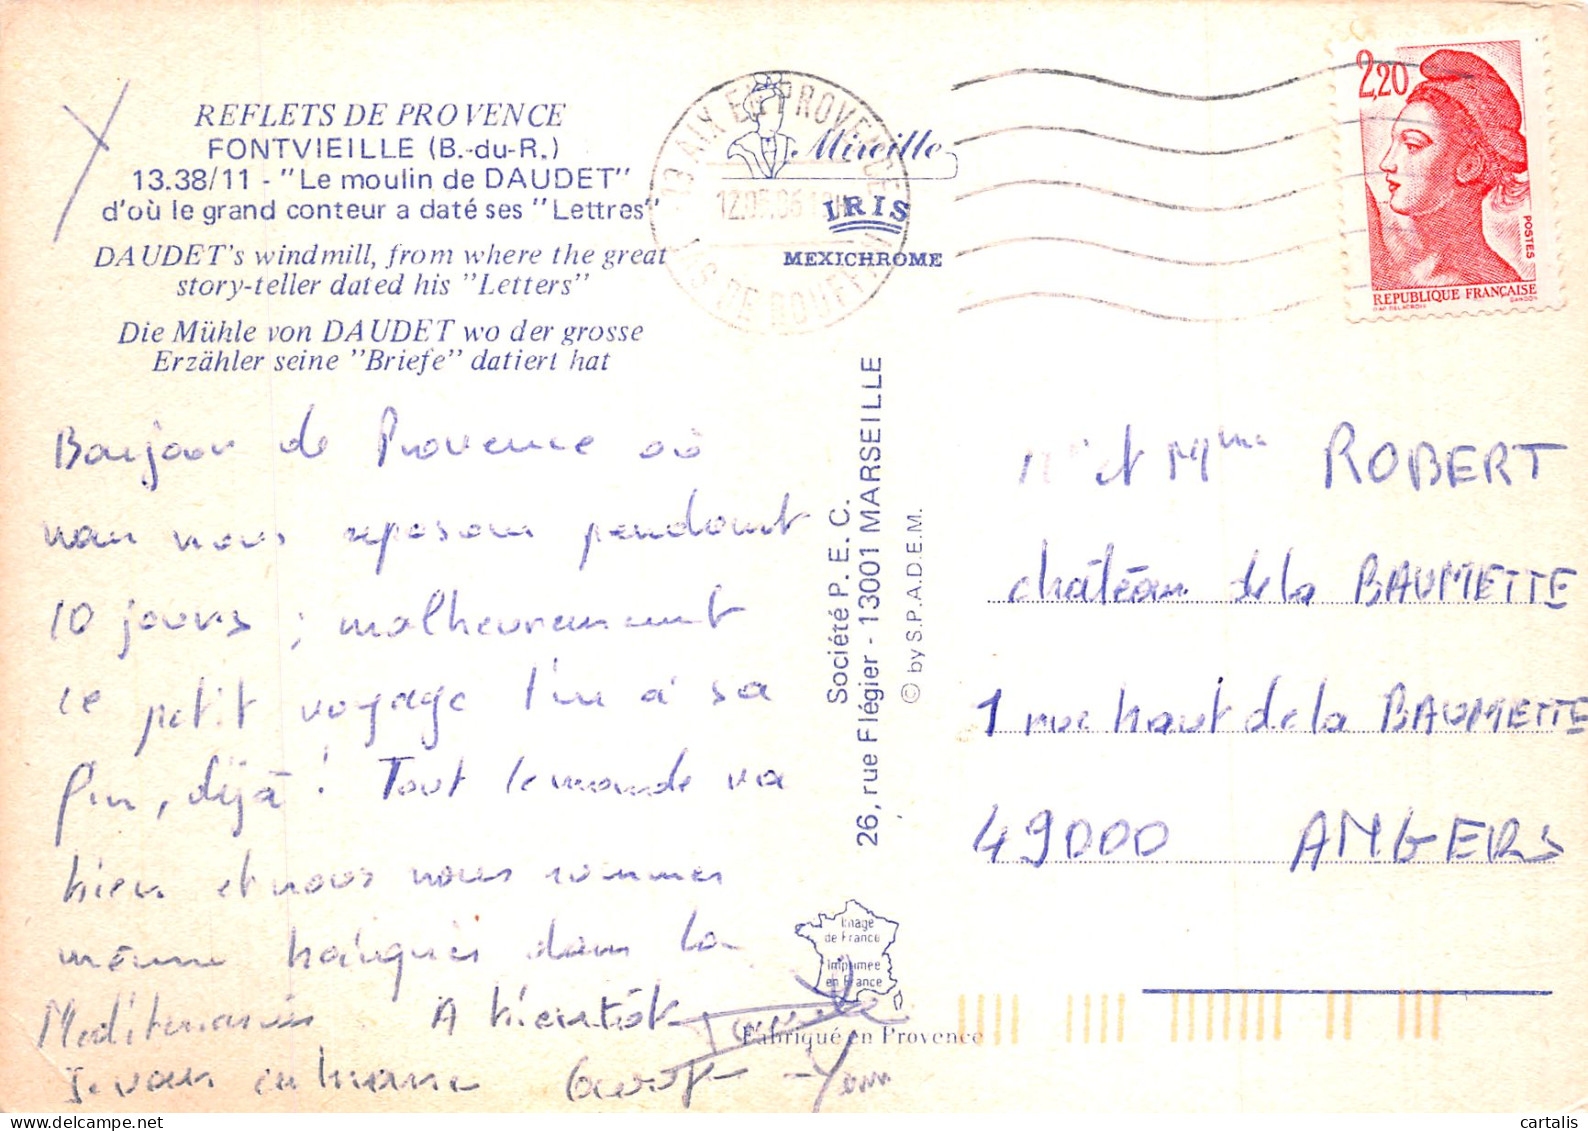 REFLETS DE PROVENCE
FONTVIEILLE (B.-du-R.)
13.38/11 - "Le moulin de DAUDET"
d'où le grand conteur a daté ses "Lettres"
DAUDET's windmill, from where the great
story-teller dated his "Letters"
Die Mühle von DAUDET wo der grosse
Erzähler seine "Briefe" datiert hat
Bonjour de Provence où
nous nous reposons pendant
10 jours ; malheureusement
ce petit voyage tire à sa
fin, déjà ! Tout le monde va
bien et nous nous sommes
même baignés dans la
Mediterranée. A bientôt
Je vous embrasse
Yann
13 AIX EN PROVENCE
Mireille
IRIS
MEXICHROME
Société P. E. C.
26, rue Flégier - 13001 MARSEILLE
© by S.P.A.D.E.M.
Image
de France
imprimée
en France
Fabriqué en Provence
2,20
POSTES
REPUBLIQUE FRANÇAISE
D'AP. DELACROIX GANDON
Mr et Mme ROBERT
château de la BAUMETTE
1 rue haut de la BAUMETTE
49000 ANGERS
cartalis